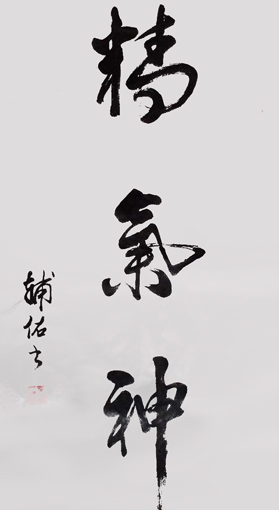 精氣神
輔佑书